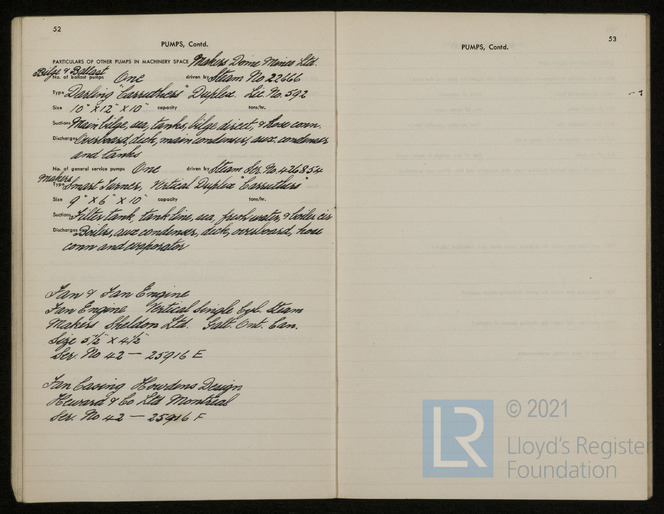 52
PUMPS, Contd.
PARTICULARS OF OTHER PUMPS IN MACHINERY SPACE Makers Dome Mines Ltd.
Bilge & Ballast
No. of ballast pumps One driven by Steam No 22666
Type Darling "Carruthers" Duplex Lic. No. 592
Size 10" X 12" X 10" capacity tons/hr.
Suctions Main bilge, sea, tanks, bilge direct, & hose conn.
Discharges Overboard, deck, main condenser, aux. condenser
and tanks
No. of general service pumps One driven by Steam Ser. No. 426854
Makers
Type Smart Turner, Vertical Duplex "Carruthers"
Size 9" X 6" X 10" capacity tons/hr.
Suctions Filter tank, tank line, sea, fresh water, & boiler cir
Discharges Boilers, aux condenser, deck, overboard, hose
conn and evaporator
Fan & Fan Engine
Fan Engine Vertical Single Cyl. Steam
Makers Sheldon Ltd. Galt. Ont. Can.
Size 5½" X 4½"
Ser. No 42 — 25916 E
Fan Casing Howdons Design
Heward & Co Ltd Montreal
Ser. No 42 — 25916 F
53
PUMPS, Contd.
LR © 2021
Lloyd's Register
Foundation